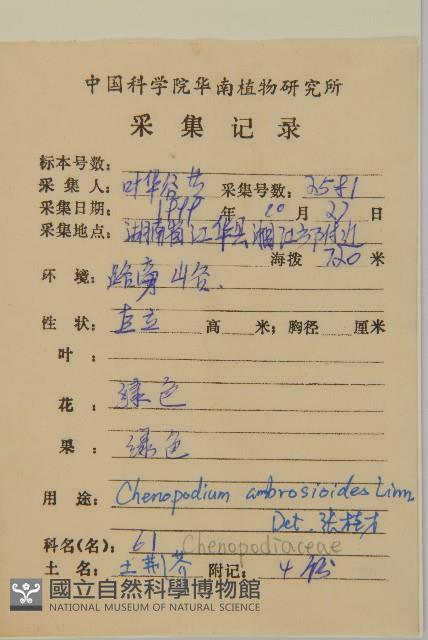 中国科学院华南植物研究所
采集记录
标本号数：
采集人： 叶华谷 采集号数：
采集日期： 年 10 月 27 日
采集地点： 湖南省江华县湘江乡附近
海拨 720 米
环境： 路旁 山谷.
性状： 直立 高 米；胸径 厘米
叶：
花： 绿色
果： 绿色
用途： Chenopodium ambrosioides Linn.
Det. 张桂才
科名(名)： 61 Chenopodiaceae
土名： 土荆芥 附记： 4份
國立自然科學博物館
NATIONAL MUSEUM OF NATURAL SCIENCE